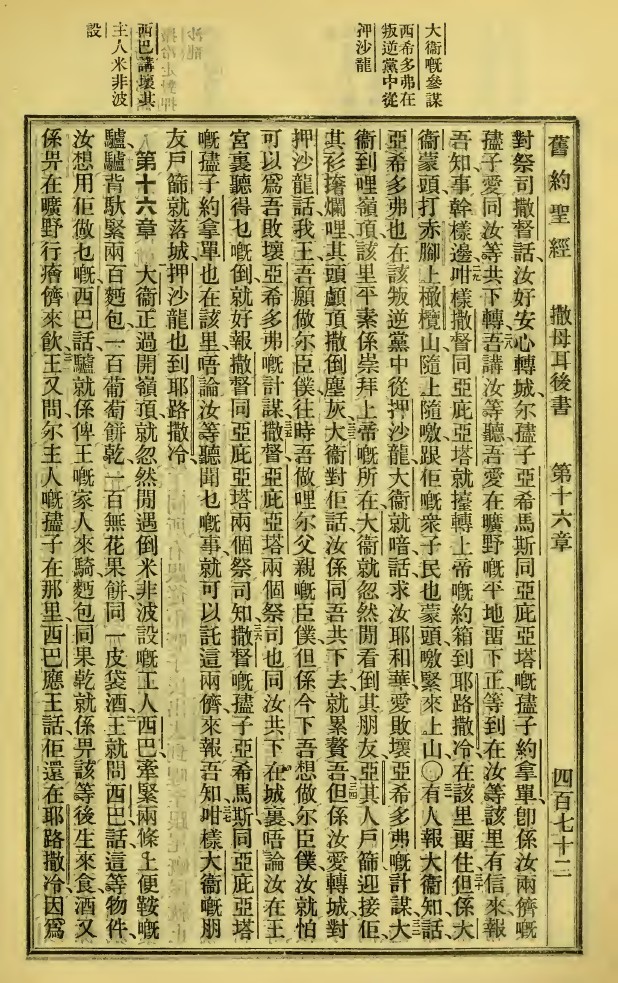 大衞嘅參謀
西希多弗在
叛逆黨中從
押沙龍
西巴講壞其
主人米非波
設
舊約聖經 撒母耳後書 第十六章 四百七十二
對祭司撒督話、汝好安心轉城、尔𡥧子亞希馬斯同亞庇亞塔嘅𡥧子約拿單、卽係汝兩儕嘅
𡥧子愛同汝等共下轉、吾講汝等聽、吾愛在曠野嘅平地畱下、正等到在汝等該里有信來報
吾知、事幹樣邊咁樣撒督同亞庇亞塔就擡轉上帝嘅約箱到耶路撒冷、在該里畱住、但係大
衞蒙頭、打赤腳上橄欖山、隨上隨噭、跟佢嘅衆子民也蒙頭噭緊來上山、〇有人報大衞知、話
亞希多弗也在該叛逆黨中從押沙龍、大衞就喑話、求汝耶和華愛敗壞亞希多弗嘅計謀、大
衞到哩嶺頂、該里平素係崇拜上帝嘅所在、大衞就忽然間看倒其朋友亞其人戶篩迎接佢、
其衫撦爛哩、其頭顱頂撒倒塵灰、大衞對佢話、汝係同吾共下去、就累贅吾、但係汝愛轉城、對
押沙龍話、我王、吾願做尔臣僕、往時吾做哩尔父親嘅臣僕、但係今下吾想做尔臣僕、汝就怕
可以爲吾敗壞亞希多弗嘅計謀、撒督、亞庇亞塔兩個祭司也同汝共下在城裏、唔論汝在王
宮裏聽得乜嘅倒、就好報撒督同亞庇亞塔兩個祭司知、撒督嘅𡥧子亞希馬斯、同亞庇亞塔
嘅𡥧子約拿單也在該里、唔論汝等聽聞乜嘅事、就可以託這兩儕來報吾知、咁樣大衞嘅朋
友戶篩就落城、押沙龍也到耶路撒冷、
第十六章 大衞正過開嶺頂、就忽然間遇倒米非波設嘅工人西巴、牽緊兩條上便鞍嘅
驢、驢背馱緊兩百麪包、一百葡萄餅乾、一百無花果餅、同一皮袋酒、王就問西巴話、這等物件、
汝想用佢做乜嘅、西巴話、驢就係俾王嘅家人來騎、麪包同果乾就係畀該等後生來食、酒又
係畀在曠野行𤺪儕來飲、王又問、尔主人嘅𡥧子在那里、西巴應王話、佢還在耶路撒冷、因爲